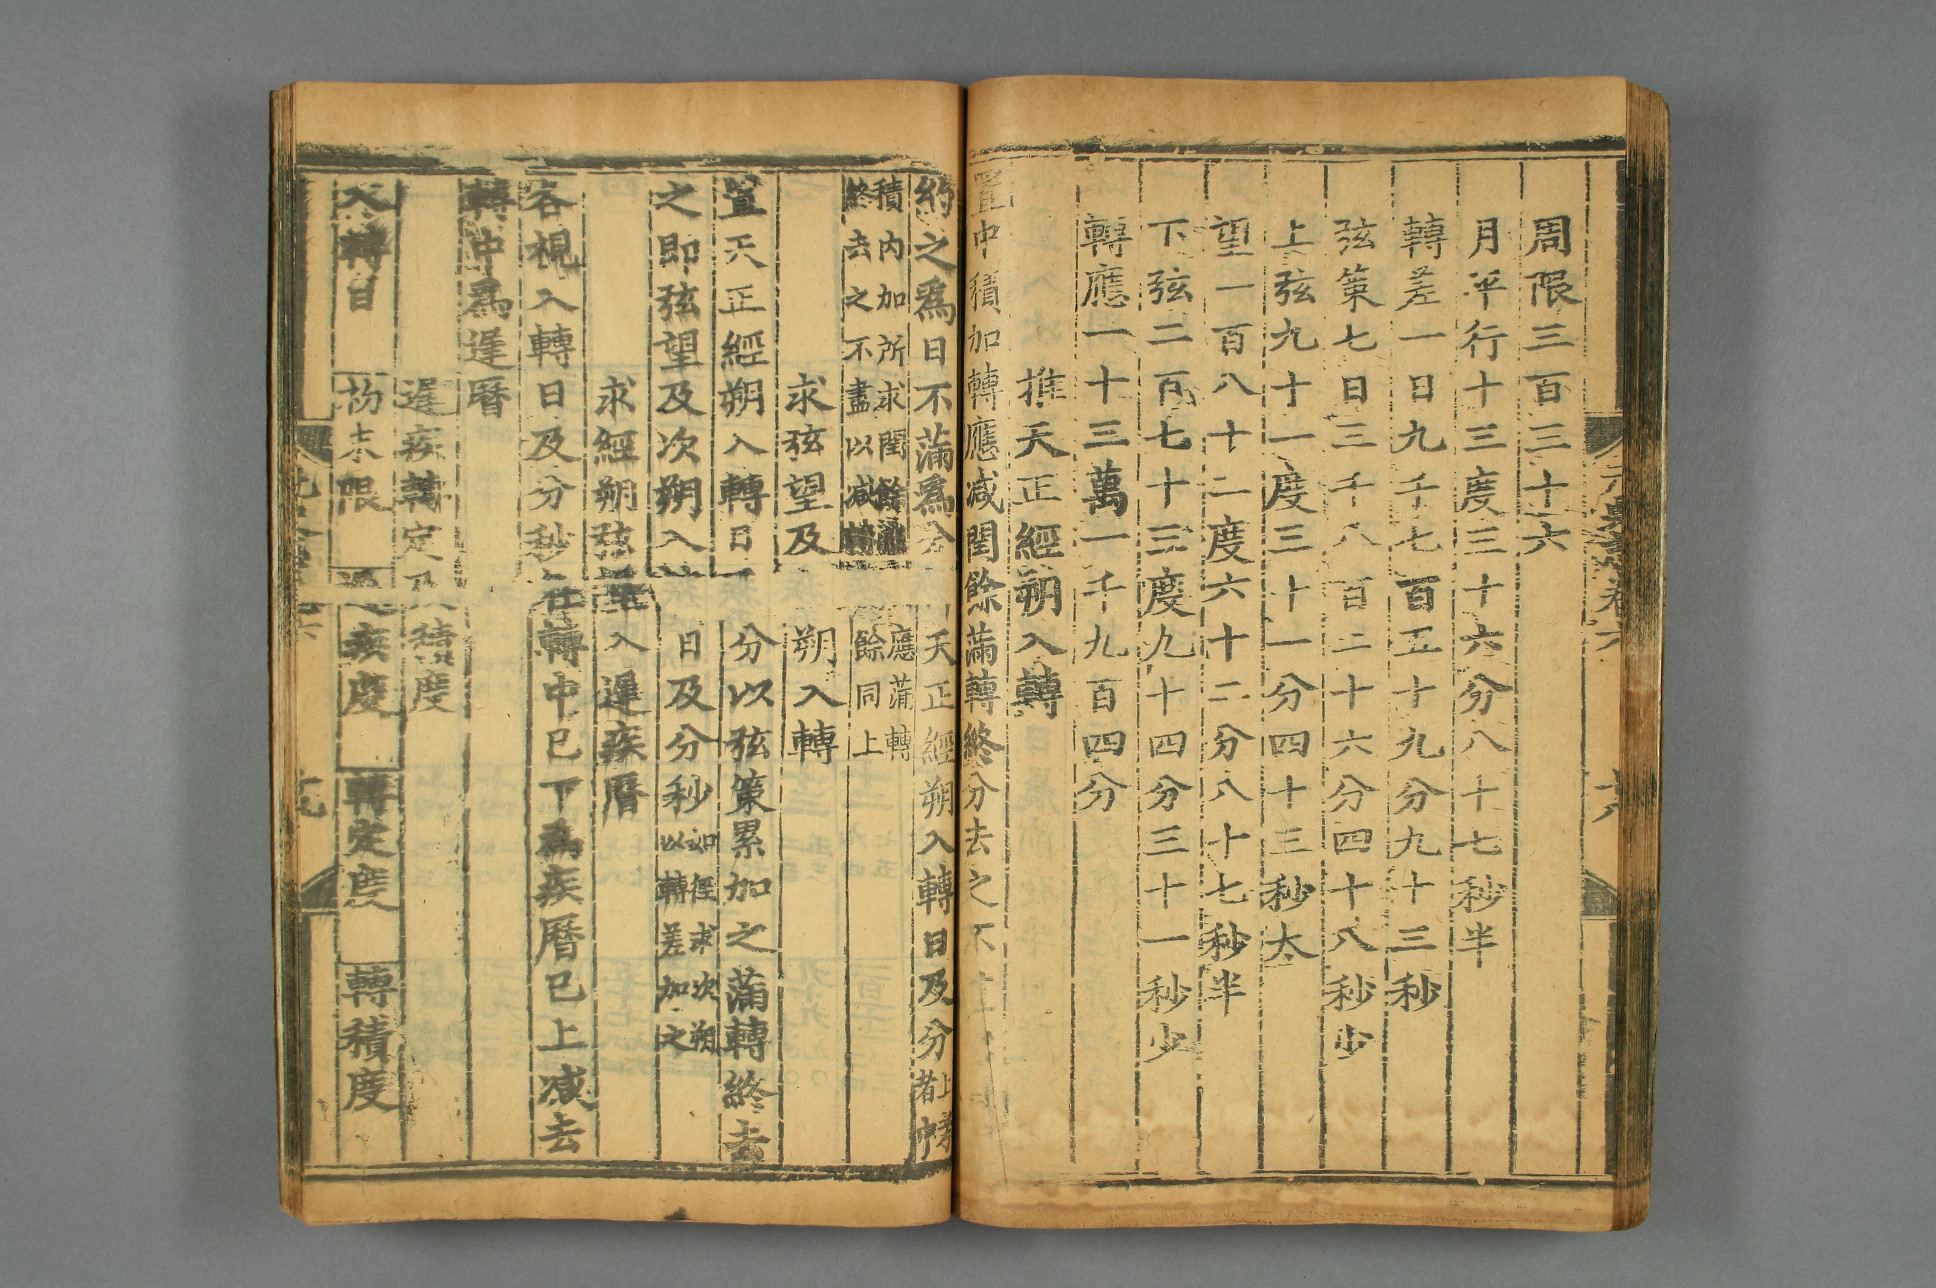 周限三百三十六
月平行十三度三十六分八十七秒半
轉差一日九千七百五十九分九十三秒
弦策七日三千八百二十六分四十八秒少
上弦九十一度三十一分四十三秒太
望一百八十二度六十二分八十七秒半
下弦二百七十三度九十四分三十一秒少
轉應一十三萬一千九百四分
推天正經朔入轉
置中積加轉應减閏餘滿轉終分去之不
約之爲日不滿爲分 天正經朔入轉日及分上者中
積内加所求閏餘滿 應滿轉
終去之不盡以减轉 餘同上
求弦望及 朔入轉
置天正經朔入轉日 分以弦策累加之滿轉終去
之即弦望及次朔入 日及分秒如徑求次朔
以轉差加之
求經朔弦望入遲疾曆
各視入轉日及分秒在轉中已下爲疾曆已上减去
轉中爲遲曆
遲疾轉定及積度
入轉日 初末限 疾度 轉定度 轉積度